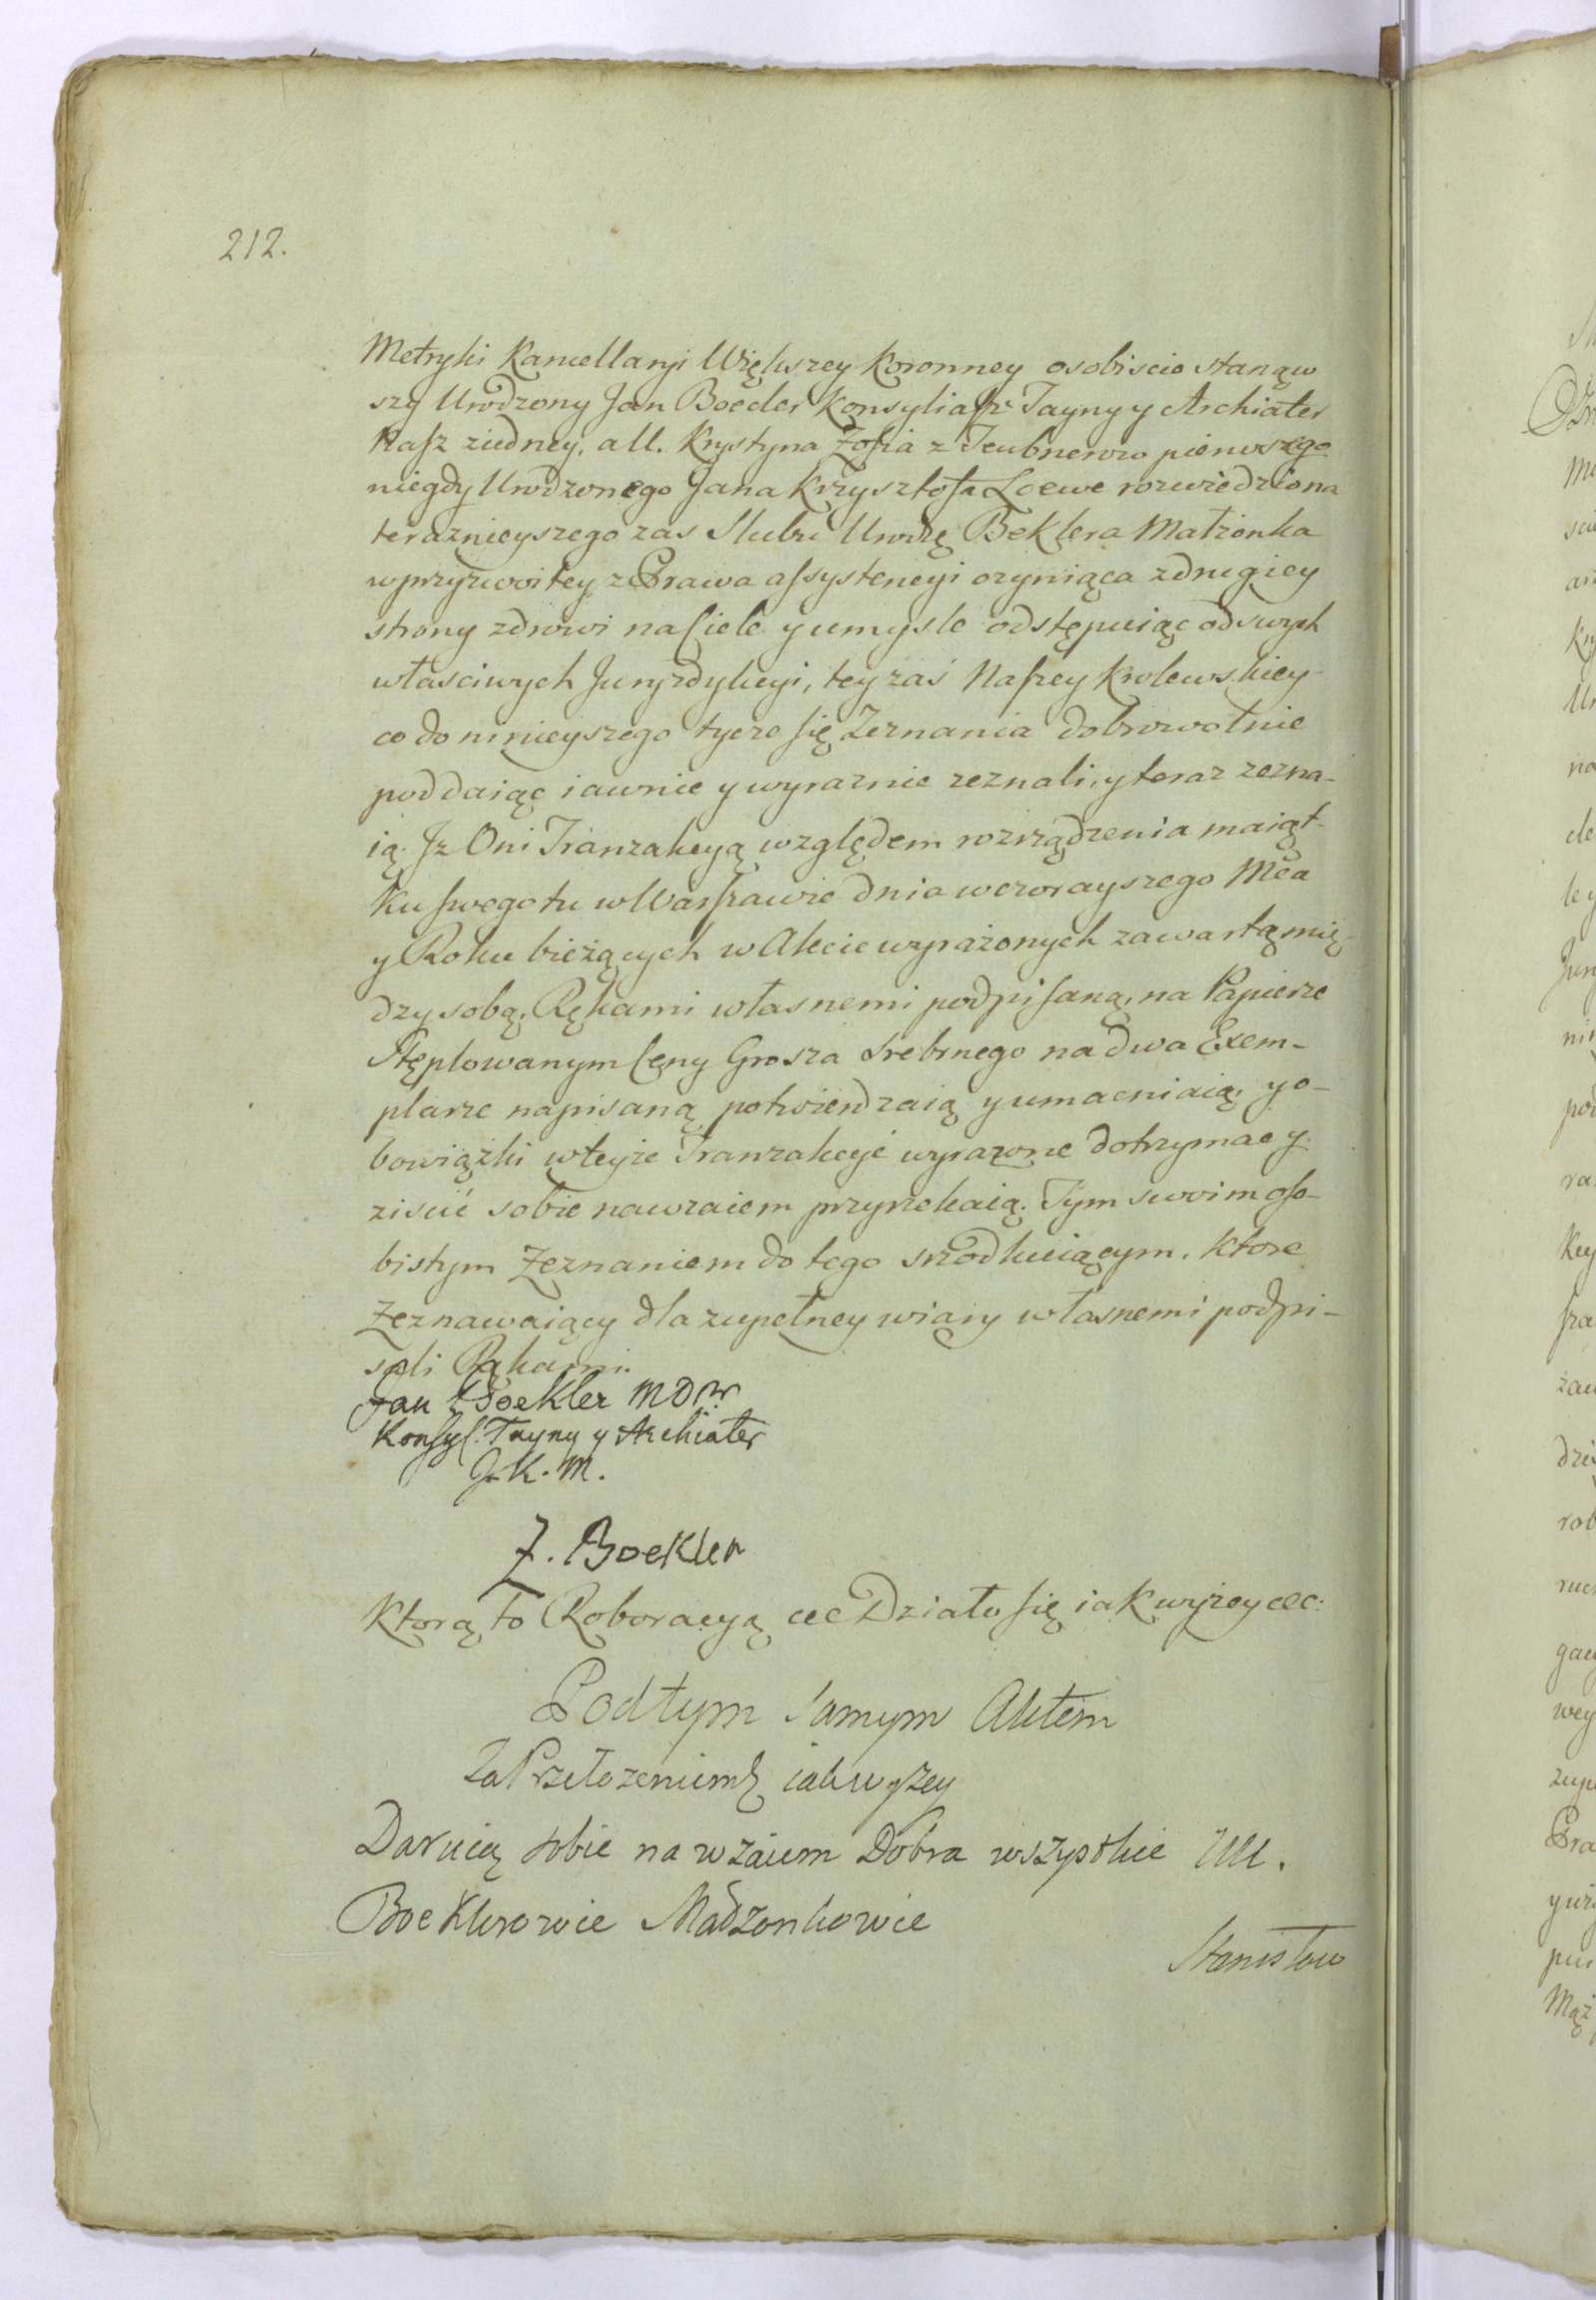 212.
Metryki Kancellaryi Większey Koronney osobiscie stanąw
szy Urodzony Jan Boecler Konsyliarz Tayny y Archiater
Nasz ziedney, all. Krystyna Zofia z Teubnerow pierwszego
niegdy Urodzonego Jana Krzysztofa Loewe rozwiedziona
teraznieyszego zas Slubu Urodzę Beklera Małżonka
wprzyzwoitey z Prawa assystencyi czyniąca zdrugiey
strony zdrowi na Ciele y umysle odstępuiąc od swych
właściwych Juryzdykcyi, tey zaś Naszey Krolewskiey
co do ninieyszego tycze się Zeznania dobrowolnie
poddaiąc iawnie y wyraznie zeznali, y teraz zezna-
ią. Jz Oni Tranzakcyą względem rozrządzenia maiąt-
ku swego tu w Warszawie dnia wczorayszego Mca
y Roku bieżących w Akcie wyrażonych zawartą mię-
dzy sobą, Rękami własnemi podpisaną, na Papierze
Stęplowanym Ceny Grosza srebrnego na dwa Exem-
plarze napisaną potwierdzaią y umacniaią, y o-
bowiązki w teyże Tranzakcyi wyrazone dotrzymac y
ziscić sobie nawzaiem przyrzekaią. Tym swoim oso-
bistym Zeznaniem do tego srzodkuiącym. Ktore
Zeznawaiący dla zupełney wiary własnemi podpi-
sali Rękami.
Jan Boekler MD
Konsyl. Tayny y Archiater
J. K. M.
Z. Boekler
Ktorą to Roboracyą etc Działo się iak wyżey etc:
Pod tym samym Aktem
Za Przełozeniem iak wyzey
Daruią sobie na wzaiem Dobra wszystkie UU.
Boeklerowie Madzonkowie
Stanisław